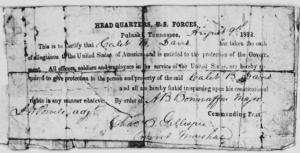 HEAD QUARTERS, U. S. FORCES,
Pulaski, Tennessee, August 1863.
This is to Certify that Caleb B. Davis has taken the oath
of allegiance to the United States of America and is entitled to the protection of the Government. All officers, soldiers and employees in the service of the United States, are hereby
to give protection to the person and property of the said Caleb B Davis
and all are hereby forbid trespassing upon his constitutional
rights in any manner whatever. By order of A B Major
adj. Commanding Post.
Chas B Gillespie
Provost Marshal